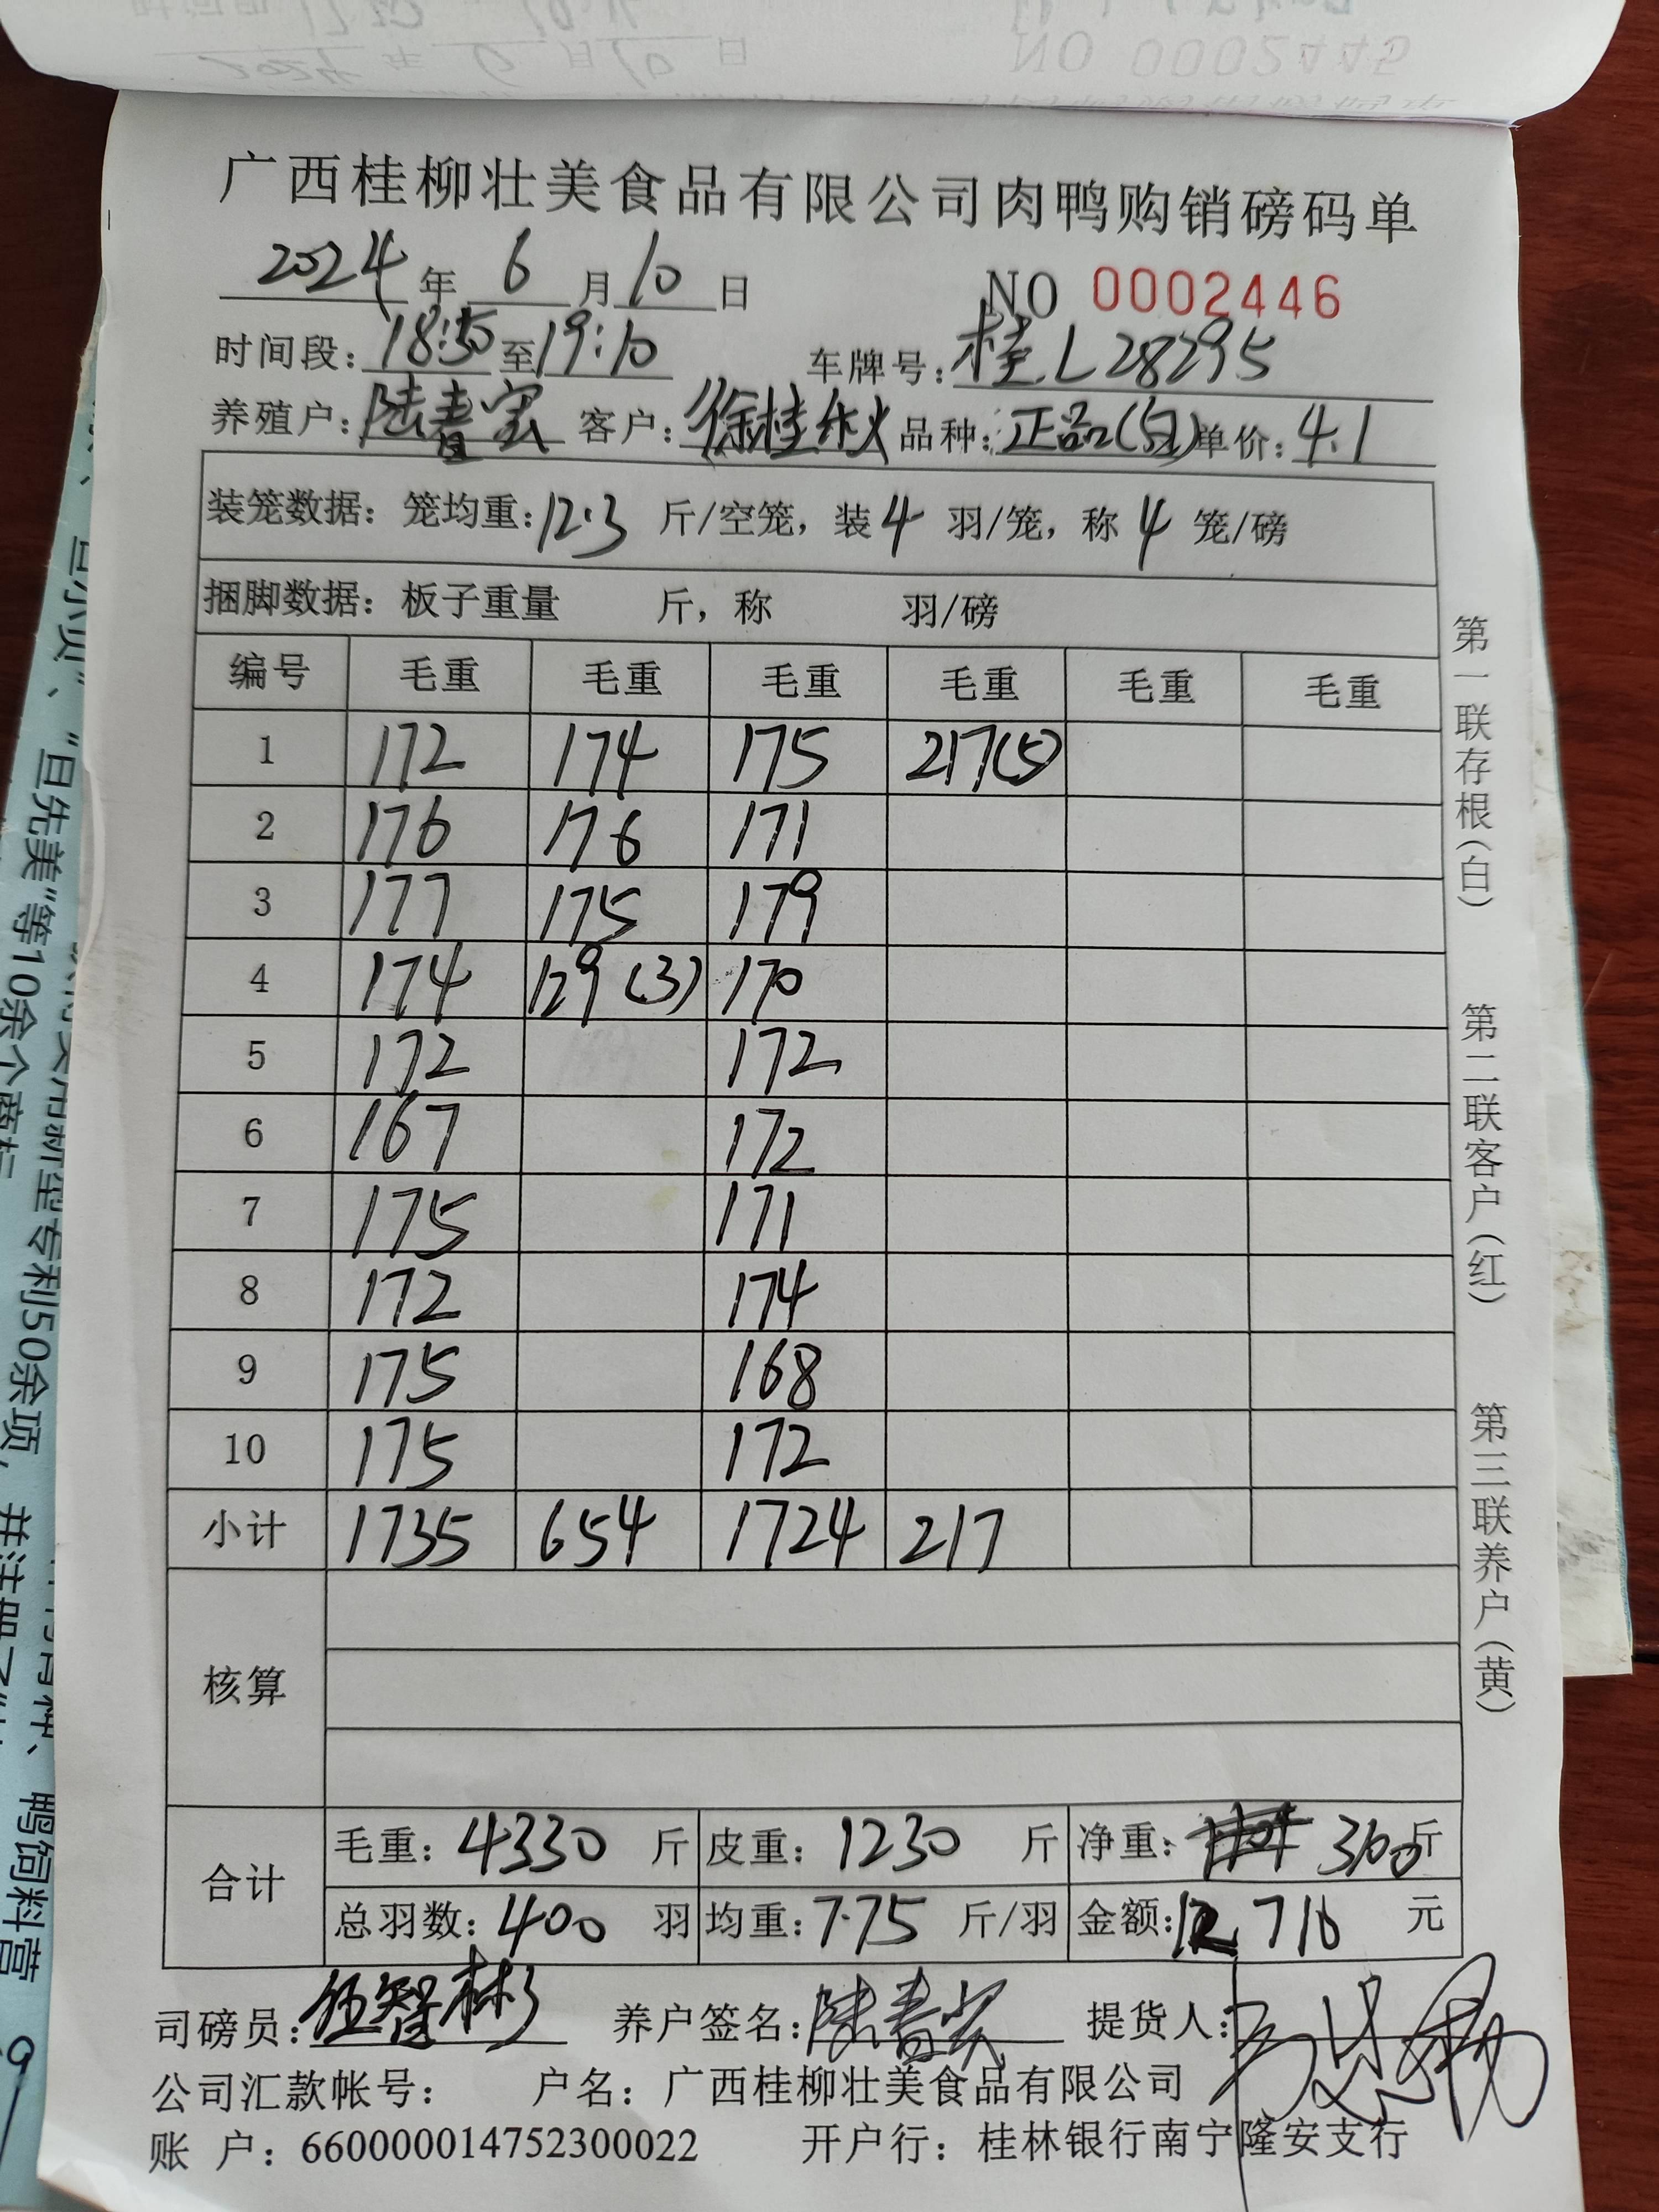 NO 0002445
2024 年 6 月 10 日
广西桂柳壮美食品有限公司肉鸭购销磅码单
2024 年 6 月 10 日 NO 0002446
时间段：18:50 至 19:10 车牌号：桂L28295
养殖户：陆春宏 客户：徐桂秋 品种：正品(白) 单价：4.1
装笼数据：笼均重：12.3 斤/空笼，装 4 羽/笼，称 4 笼/磅
捆脚数据：板子重量 斤，称 羽/磅
编号 毛重 毛重 毛重 毛重 毛重 毛重
1 172 174 175 217(5)
2 176 176 171
3 177 175 179
4 174 129(3) 170
5 172 172
6 167 172
7 175 171
8 172 174
9 175 168
10 175 172
小计 1735 654 1724 217
核算
合计
毛重：4330 斤 皮重：1230 斤 净重：3100 斤
总羽数：400 羽 均重：7.75 斤/羽 金额：12710 元
司磅员：伍智彬 养户签名：陆春宏 提货人：
公司汇款帐号： 户名：广西桂柳壮美食品有限公司
账 户：660000014752300022 开户行：桂林银行南宁隆安支行
第一联存根(白)
第二联客户(红)
第三联养户(黄)
"旦先美"等10余个商标
实用新型专利50余项，并注册了
鸭饲料营